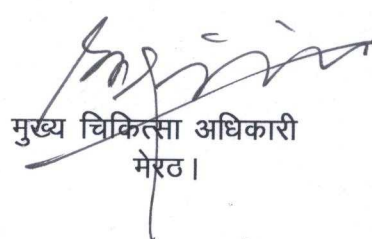 मुख्य चिकित्सा अधिकारी
मेरठ।